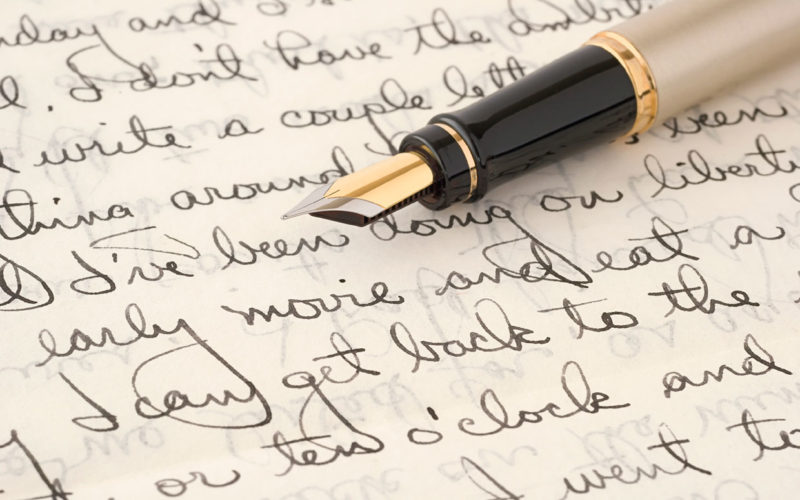 day and I
I don't have the
write a couple
thing around been
I've been doing on liberty
early movie and eat a
I can get back to the
or ten o'clock and
I went to